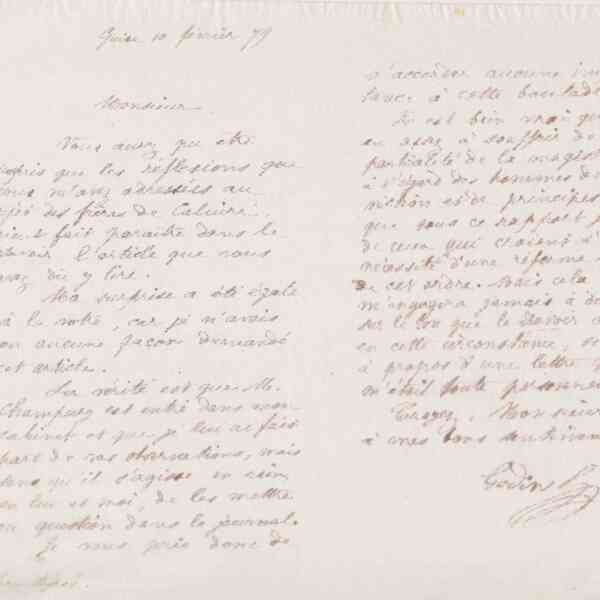 Guise 10 février 79
Monsieur
Vous avez pu être
surpris que les réflexions que
vous m'avez adressées au
sujet des frères de Caluire,
aient fait paraître dans le
Devoir l'article que vous
avez dû y lire.
Ma surprise a été égale
à la vôtre, car je n'avais
en aucune façon demandé
cet article.
La vérité est que M.
Champury est entré dans mon
cabinet et que je lui ai fait
part de vos observations, mais
sans qu'il s'agisse en rien,
en lui et moi, de les mettre
en question dans le journal.
Je vous prie donc de
n'accorder aucune im
tance à cette boutade
Il est bien vrai que
en assez à souffrir de
partialité de la magist
à l'égard des hommes de
et de principes
que sous ce rapport
de ceux qui croient à
nécessité d'une réforme
de cet ordre. Mais cela
m'engagera jamais à
sur le ton que le Devoir a
en cette circonstance,
à propos d'une lettre q
m'était toute personne
Croyez, Monsieur
à mes bons sentimen
Godin